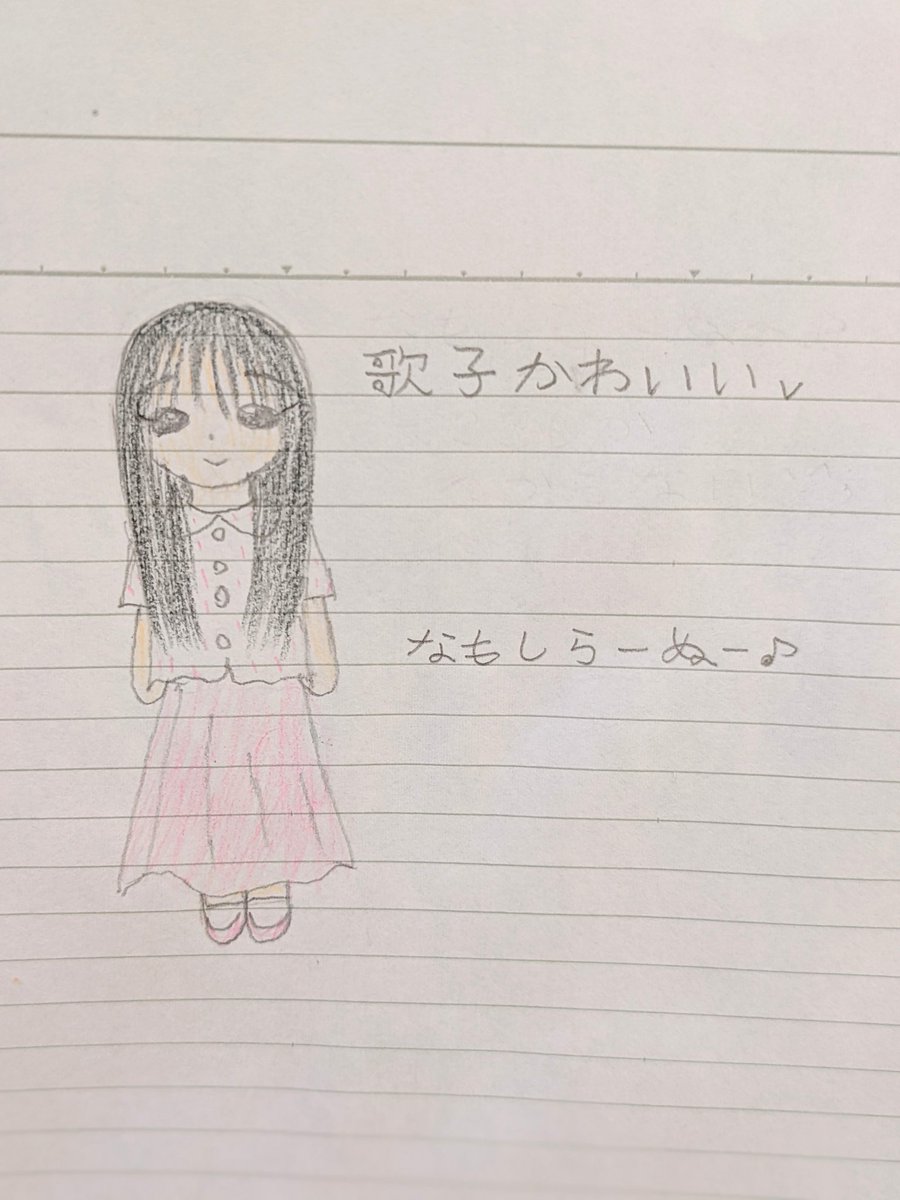 歌子かわいいッ
なもしらーぬー♪